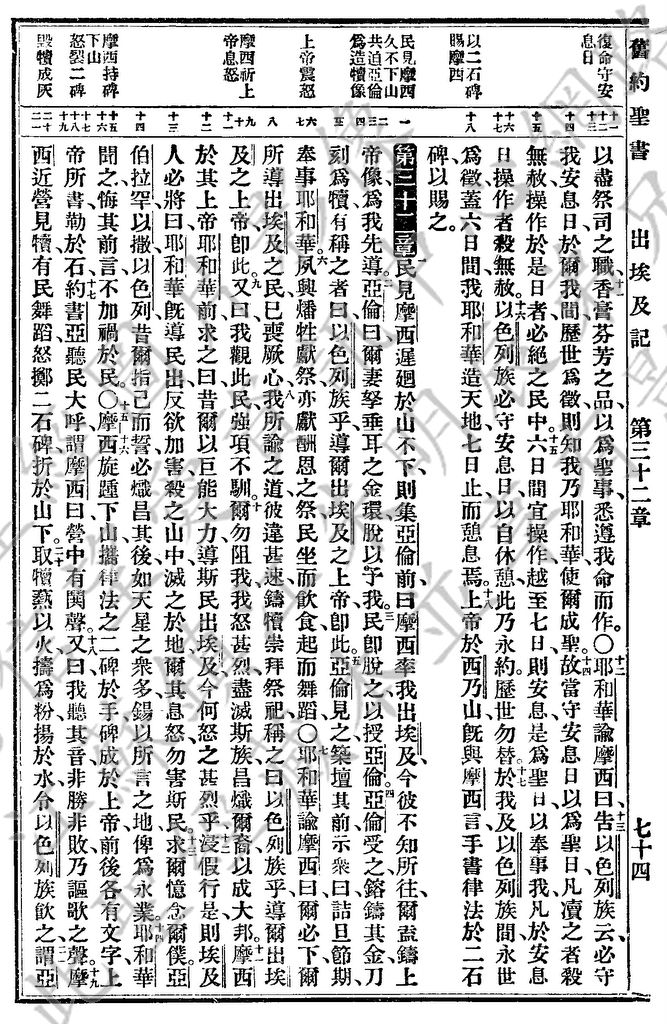 舊約聖書 出埃及記 第三十二章 七十四
復命守安息日
以二石碑賜摩西
民見摩西久不下山共迫亞倫爲造犢像
上帝震怒
摩西祈上帝息怒
摩西持碑下山
怒裂二碑
毀犢成灰
以盡祭司之職、十一香膏芬芳之品、以爲聖事、悉遵我命而作。〇十二耶和華諭摩西曰、十三告以色列族云、必守
我安息日、於爾我間、歷世爲徵、則知我乃耶和華、使爾成聖。十四故當守安息日、以爲聖日、凡瀆之者殺
無赦、操作於是日者、必絕之民中。十五六日間宜操作、越至七日、則安息、是爲聖日、以奉事我、凡於安息
日操作者、殺無赦。十六以色列族必守安息日、以自休憩、此乃永約、歷世勿替。十七於我及以色列族間、永世
爲徵、蓋六日間我耶和華造天地、七日止而憩息焉。十八上帝於西乃山、旣與摩西言、手書律法於二石
碑以賜之。
第三十二章 一民見摩西遲廻於山不下、則集亞倫前、曰、摩西率我出埃及、今彼不知所往、爾盍鑄上
帝像、爲我先導。二亞倫曰、爾妻孥垂耳之金環、脫以予我。三民卽脫之、以授亞倫。四亞倫受之、鎔鑄其金、刀
刻爲犢、有稱之者曰、以色列族乎、導爾出埃及之上帝卽此。五亞倫見之、築壇其前、示衆曰、詰旦節期、
奉事耶和華。六夙興燔牲獻祭、亦獻酬恩之祭、民坐而飲食、起而舞蹈。〇七耶和華諭摩西曰、爾必下、爾
所導出埃及之民、已喪厥心、八我所諭之道、彼違甚速、鑄犢崇拜祭祀、稱之曰、以色列族乎、導爾出埃
及之上帝卽此。九又曰、我觀此民、強項不馴、十爾勿阻我、我怒甚烈、盡滅斯族、昌熾爾裔、以成大邦。十一摩西
於其上帝耶和華前、求之曰、昔爾以巨能大力、導斯民出埃及、今何怒之甚烈乎。十二漫假行是、則埃及
人必將曰、耶和華旣導民出、反欲加害、殺之山中、滅之於地、爾其息怒、勿害斯民。十三求爾憶念爾僕亞
伯拉罕以撒以色列、昔爾指己而誓、必熾昌其後、如天星之衆多、錫以所言之地、俾爲永業。十四耶和華
聞之、悔其前言、不加禍於民。〇十五十六摩西旋踵下山、攜律法之二碑於手、碑成於上帝、前後各有文字、上
帝所書、勒於石。十七約書亞聽民大呼、謂摩西曰、營中有鬨聲。十八又曰、我聽其音、非勝非敗、乃謳歌之聲。十九摩
西近營、見犢有民舞蹈、怒擲二石碑、折於山下。二十取犢爇以火、擣爲粉、揚於水、令以色列族飲之。二一謂亞